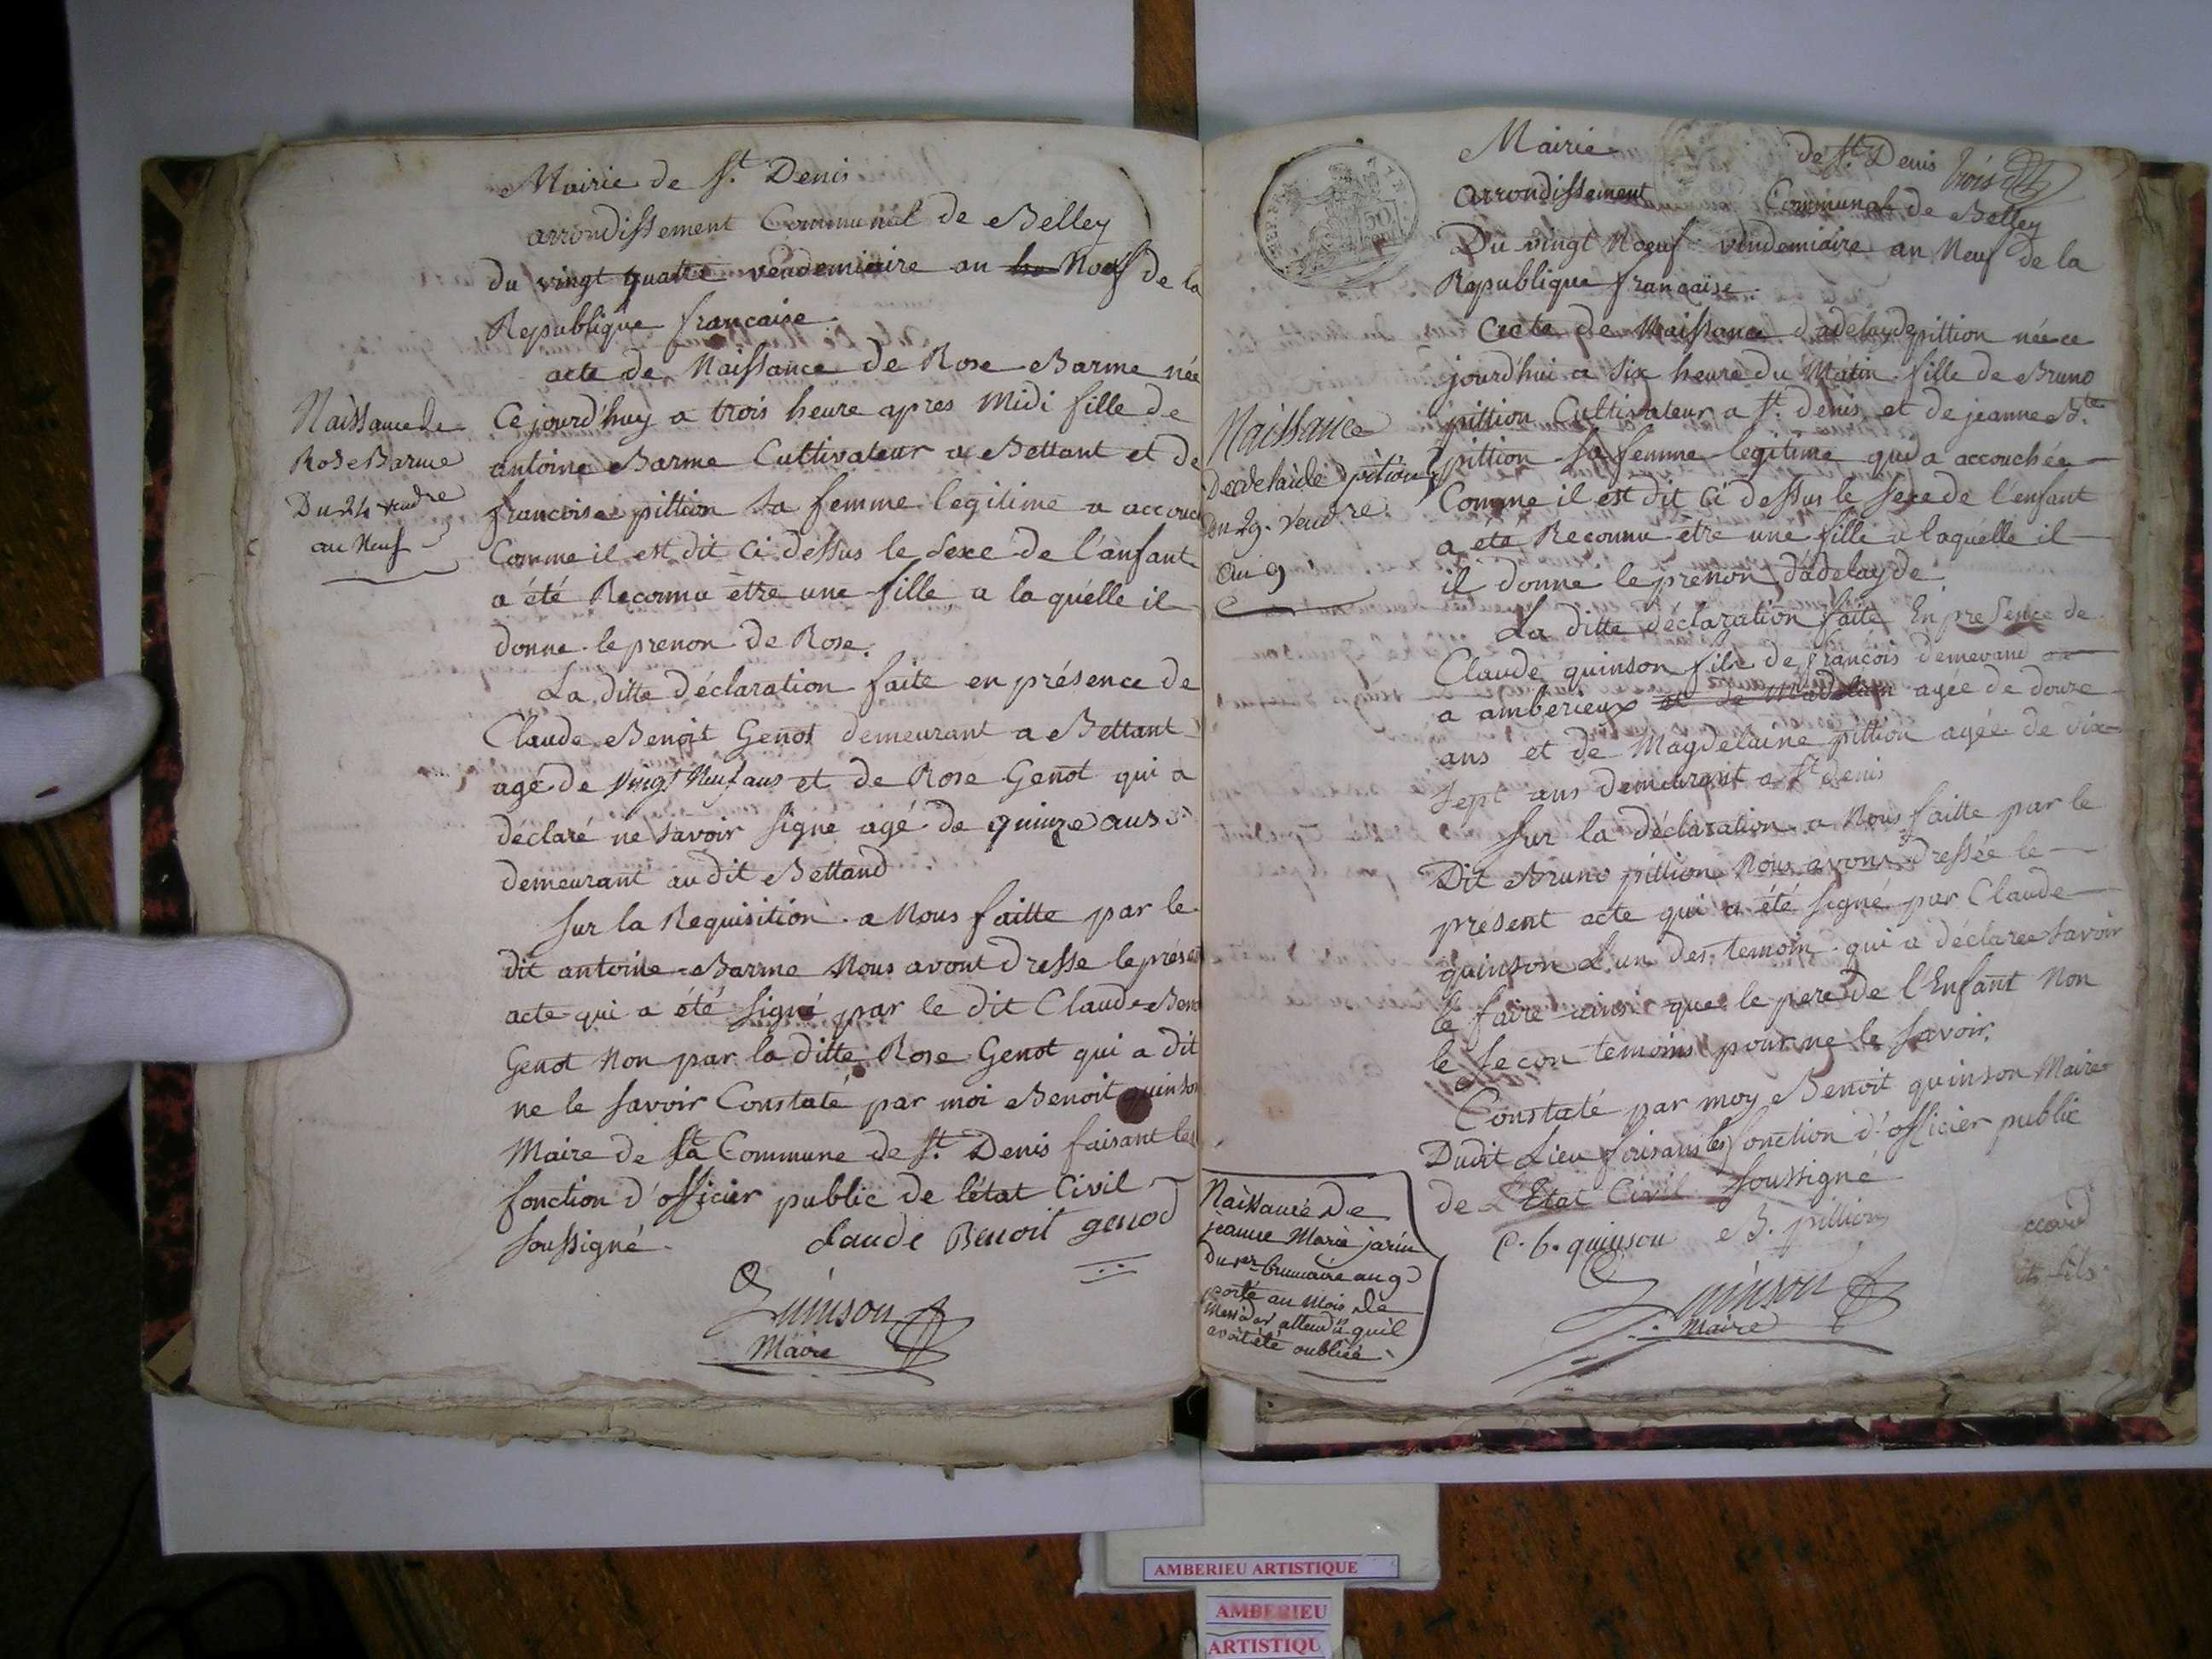 Mairie de St. Denis
arrondissement Communal de Belley
du vingt quatre vendemiaire an Noeuf de la
Republique francaise.
acte de Naissance de Rose Barme née
Naissance de
Rose Barme
Du 24 vendre
an Neuf
Ce jourd'huy a trois heure apres Midi fille de
antoine Barme Cultivateur a Bettant et de
francoise pittion sa femme legitime a accouc
Comme il est dit ci dessus le Sexe de l'anfant
a été Reconnu être une fille a laquélle il
donne le prenon de Rose.
La ditte déclaration faite en présence de
Claude Benoit Genot demeurant a Bettant
agé de vingt Neuf ans et de Rose Genot qui a
déclaré ne savoir signé agé de quinze ans
demeurant au dit Bettand
Sur la Requisition a Nous faitte par le
dit antoine Barme Nous avont dresse le présen
acte qui a été signé par le dit Claude Beno
Genot Non par la ditte Rose Genot qui a dit
ne le savoir Constaté par moi Benoit quinson
Maire de la Commune de St. Denis faisant les
fonction d'officier public de l'état Civil
soussigné.
Claude Benoit genod
Quinson
Maire
Mairie de St. Denis trois
arrondissement Communal de Belley
Du vingt Noeuf vendemiaire an Neuf de la
Republique francaise.
acte de Naissance d'adelayde pittion née ce
jourd'hui a six heure du Matin fille de Bruno
pittion Cultivateur a St. denis et de jeanne Bte
pittion sa femme legitime qui a accouchée
Comme il est dit ci dessus le sexe de l'enfant
a été Reconnu être une fille a laquélle il
il donne le prenon d'adelayde
Naissance
D'adelaide pition
Du 29. vendre
an 9
La ditte déclaration faite En presence de
Claude quinson fils de françois demeurant
a amberieux et de Madelain agée de douze
ans et de Magdelaine pittion agée de dix
sept ans demeurant a St denis
Sur la déclaration a Nous faitte par le
Dit Bruno pittion Nous avons dressée le
présent acte qui a été signé par Claude
quinson L'un des temoin qui a déclaree savoir
le faire ainsi que le pere de l'Enfant Non
le secon temoins pour ne le savoir.
Constaté par moy Benoit quinson Maire
Dudit Lieu faisans les fonction d'officier public
de L'Etat Civil soussigné
C. b. quinson B. pittion
Quinson
Maire
Naissance De
jeanne Marie jarin
Du 1er brumaire an 9
porté au Mois de
Messidor attendu quil
avoit été oubliée
AMBERIEU ARTISTIQUE
AMBERIEU
ARTISTIQU